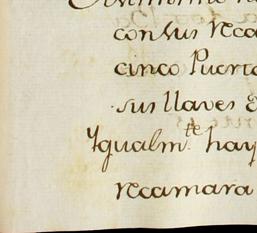 con sus reca
cinco Puerta
sus llaves
Ygualm.te hay
recamara